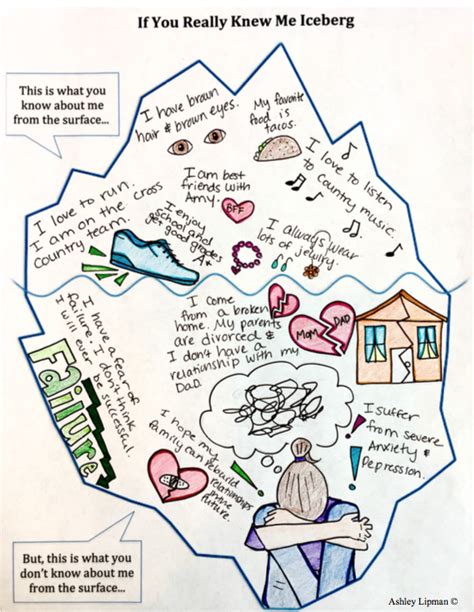 If You Really Knew Me Iceberg
This is what you
know about me
from the surface...
I have brown
hair & brown eyes.
My favorite
food is
tacos.
I love to listen
to country music.
I am best
friends with
Amy.
BFF
I love to run.
I am on the cross
country team.
I enjoy
school and
get good grades
I always wear
lots of jewelry.
I come
from a broken
home. My parents
are divorced &
I don't have a
relationship with my
Dad.
MOM
DAD
I have a fear of
failure. I don't think
will ever be successful.
Failure
I suffer
from severe
Anxiety &
Depression.
I hope my
family can rebuild
relationships
in the
future.
But, this is what you
don't know about me
from the surface...
Ashley Lipman ©